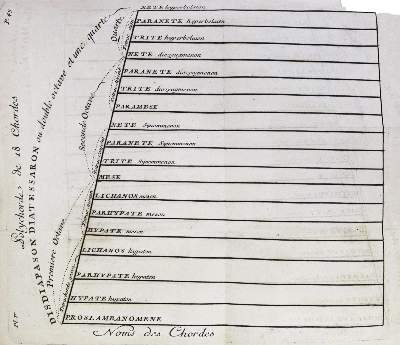 P. 67
NETE hyperbolæon
PARANETE hyperbolæon
TRITE hyperbolæon
NETE diezeugmenon
PARANETE diezeugmenon
TRITE diezeugmenon
PARAMESE
NETE Synemmenon
PARANETE Synemmenon
TRITE Synemmenon
MESE
LICHANOS meson
PARHYPATE meson
HYPATE meson
LICHANOS hypaton
PARHYPATE hypaton
HYPATE hypaton
PROSLAMBANOMENE
Noms des Chordes
Polychorde de 18 Chordes
DISDIAPASON DIATESSARON ou double octave et une quarte
Premiere Octave
Seconde Octave
Quarte